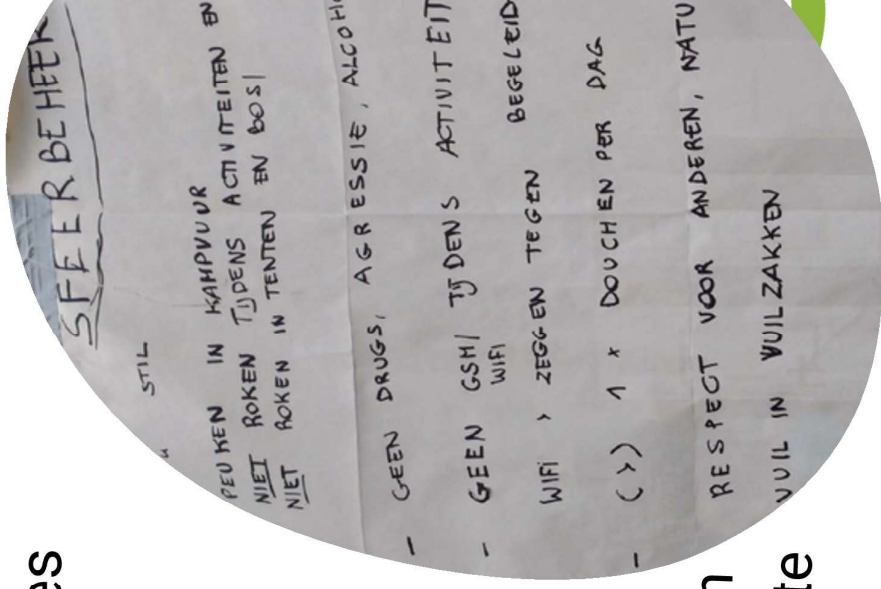 SFEERBEHEER
STIL
PEUKEN IN KAMPVUUR
NIET ROKEN TIJDENS ACTIVITEITEN EN
NIET ROKEN IN TENTEN EN BOS!
- GEEN DRUGS, AGRESSIE, ALCOHO
- GEEN GSM/ TIJDENS ACTIVITEIT
WIFI
WIFI > ZEGGEN TEGEN BEGELEID
- (>) 1 x DOUCHEN PER DAG
RESPECT VOOR ANDEREN, NATU
VUIL IN VUILZAKKEN
es
n
te